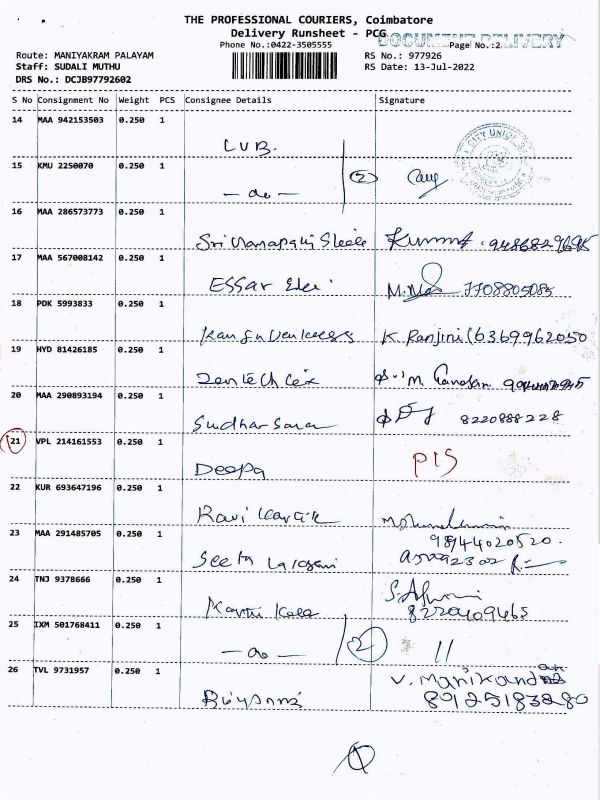 THE PROFESSIONAL COURIERS, Coimbatore
Delivery Runsheet - PCG
DOCUMENT DELIVERY
Phone No.:0422-3505555
Page No.:2
Route: MANIYAKRAM PALAYAM
RS No.: 977926
Staff: SUDALI MUTHU
RS Date: 13-Jul-2022
DRS No.: DCJB97792602
S No Consignment No Weight PCS Consignee Details Signature
14 MAA 942153503 0.250 1 LVB.
CITY UNION
15 KMU 2250070 0.250 1 — do — 2
16 MAA 286573773 0.250 1 Kumar
17 MAA 567008142 0.250 1 ESSar 7708805085
18 PDK 5993833 0.250 1 K Ranjini (6369962050
19 HYD 81426185 0.250 1 M Ganesan
20 MAA 290893194 0.250 1 Sudharsana 8220888228
21 VPL 214161553 0.250 1 Deepa PIS
22 KUR 693647196 0.250 1 Ravi Kartik
23 MAA 291485705 0.250 1 Seetha 9844020520
24 TNJ 9378666 0.250 1 Karthi Kala 8220409465
25 IXM 501768411 0.250 1 — do — 2 11
26 TVL 9731957 0.250 1 V. Manikandan
89125183280